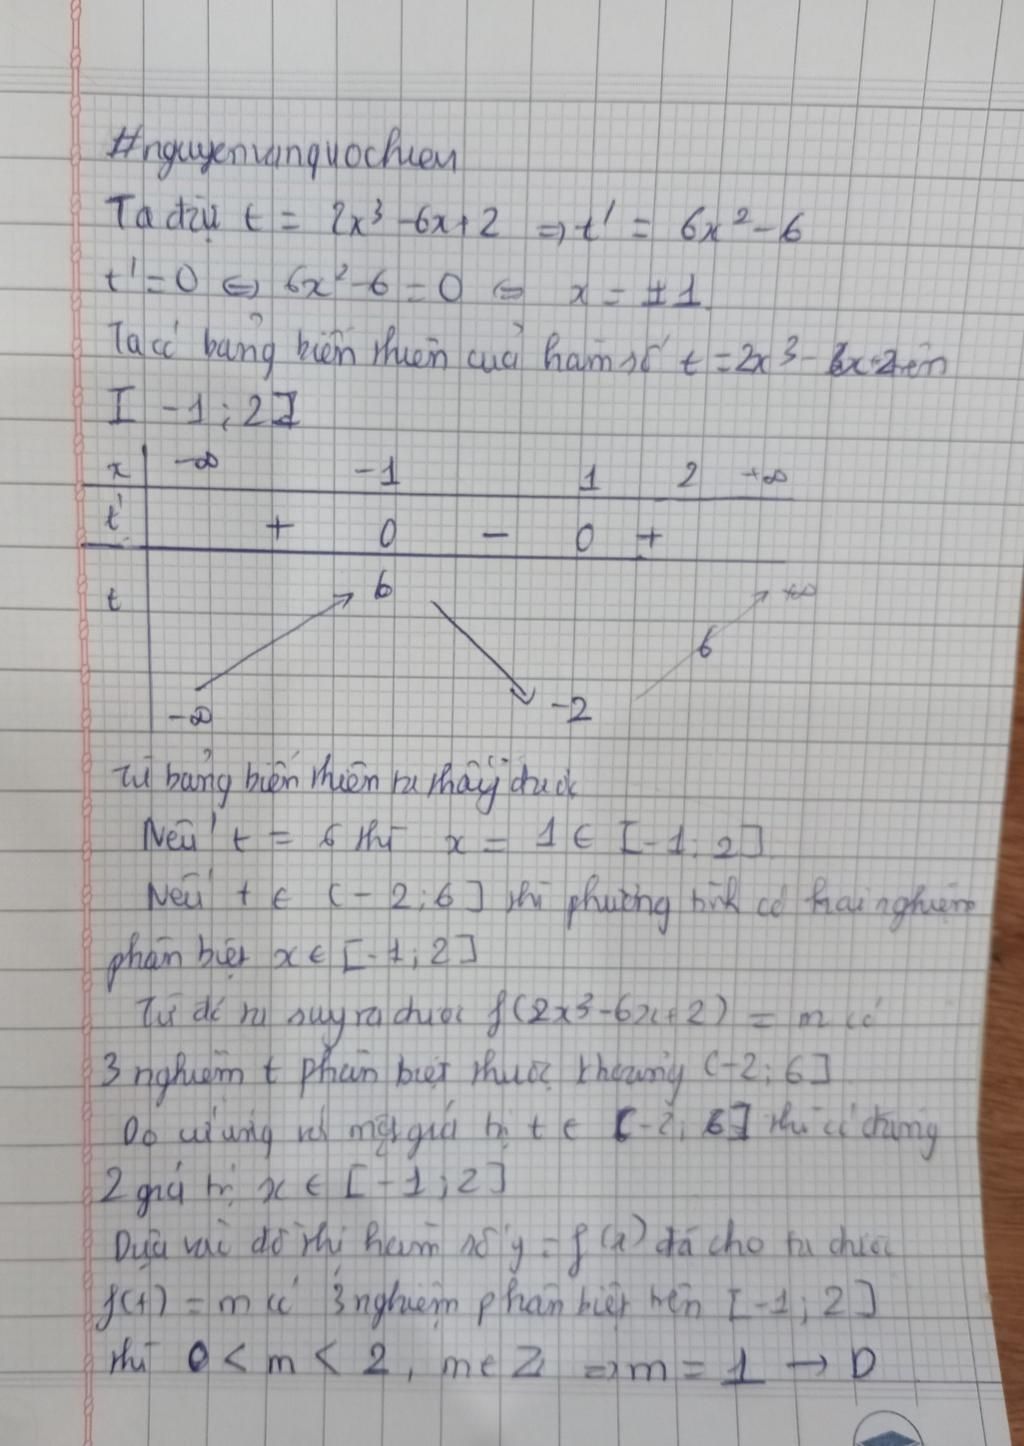 #nguyenvanquochien
Ta đặt t = 2x³ - 6x + 2 => t' = 6x² - 6
t' = 0 <=> 6x² - 6 = 0 <=> x = ±1
Ta có bảng biến thiên của hàm số t = 2x³ - 6x+2 trên
[ -1 ; 2 ]
x -∞ -1 1 2 +∞
t' + 0 - 0 +
t 6 +∞
6
-∞ -2
Từ bảng biến thiên ta thấy được
Nếu t = 6 thì x = 1 ∈ [-1; 2]
Nếu t ∈ (-2; 6] thì phương trình có hai nghiệm
phân biệt x ∈ [-1; 2]
Từ đó ta suy ra được f(2x³-6x+2) = m có
3 nghiệm t phân biệt thuộc khoảng (-2; 6]
Do ứng với một giá trị t ∈ [-2; 6] thì có đúng
2 giá trị x ∈ [-1; 2]
Dựa vào đồ thị hàm số y = f(x) đã cho ta được
f(t) = m có 3 nghiệm phân biệt trên [-1; 2]
thì 0 < m < 2, m ∈ Z => m = 1 → D